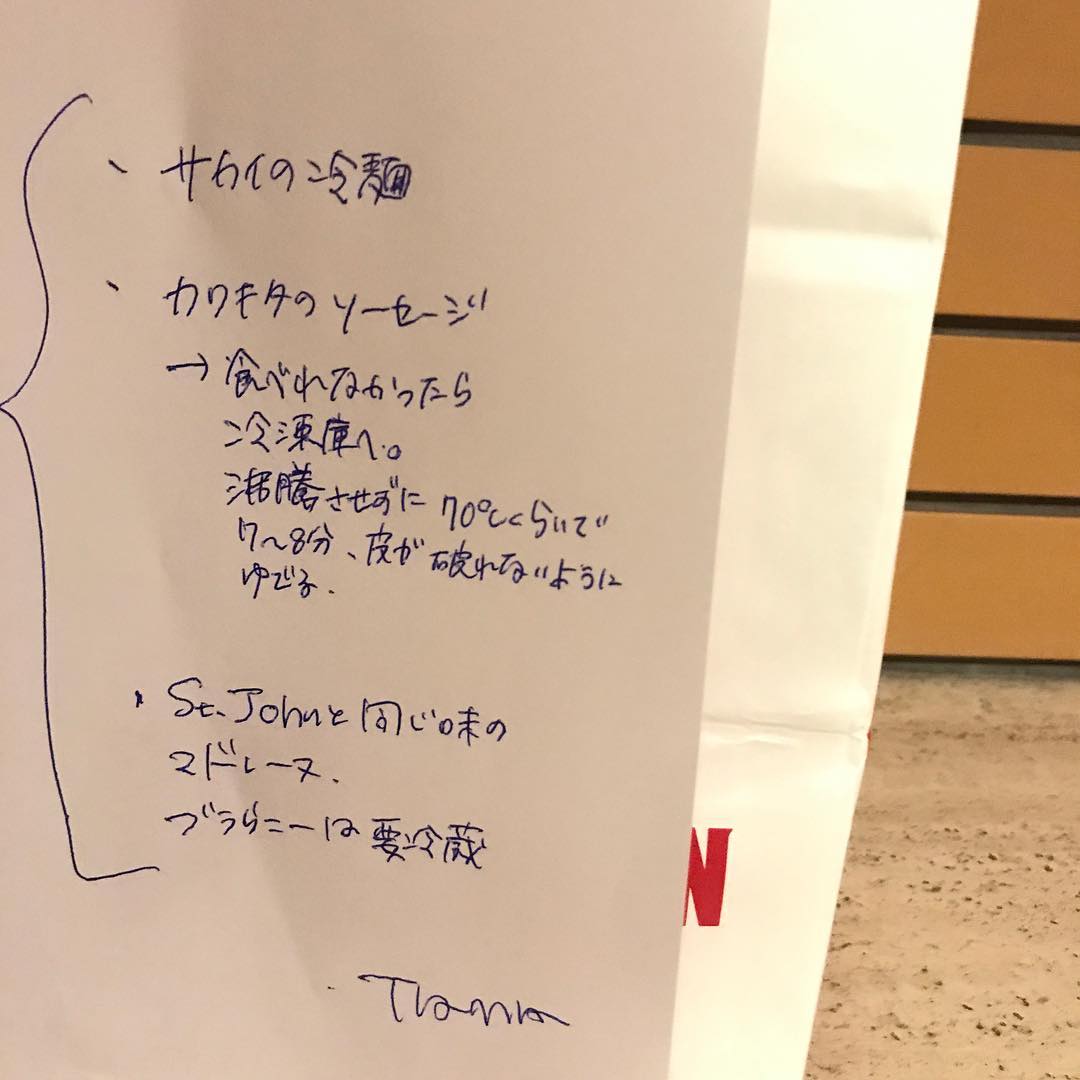 サカイの冷麺
カワキタのソーセージ
→ 食べれなかったら
冷凍庫へ。
沸騰させずに 70℃くらいで
7〜8分、皮が破れないように
ゆでる.
St. Johnと同じ味の
マドレーヌ.
は要冷蔵
N